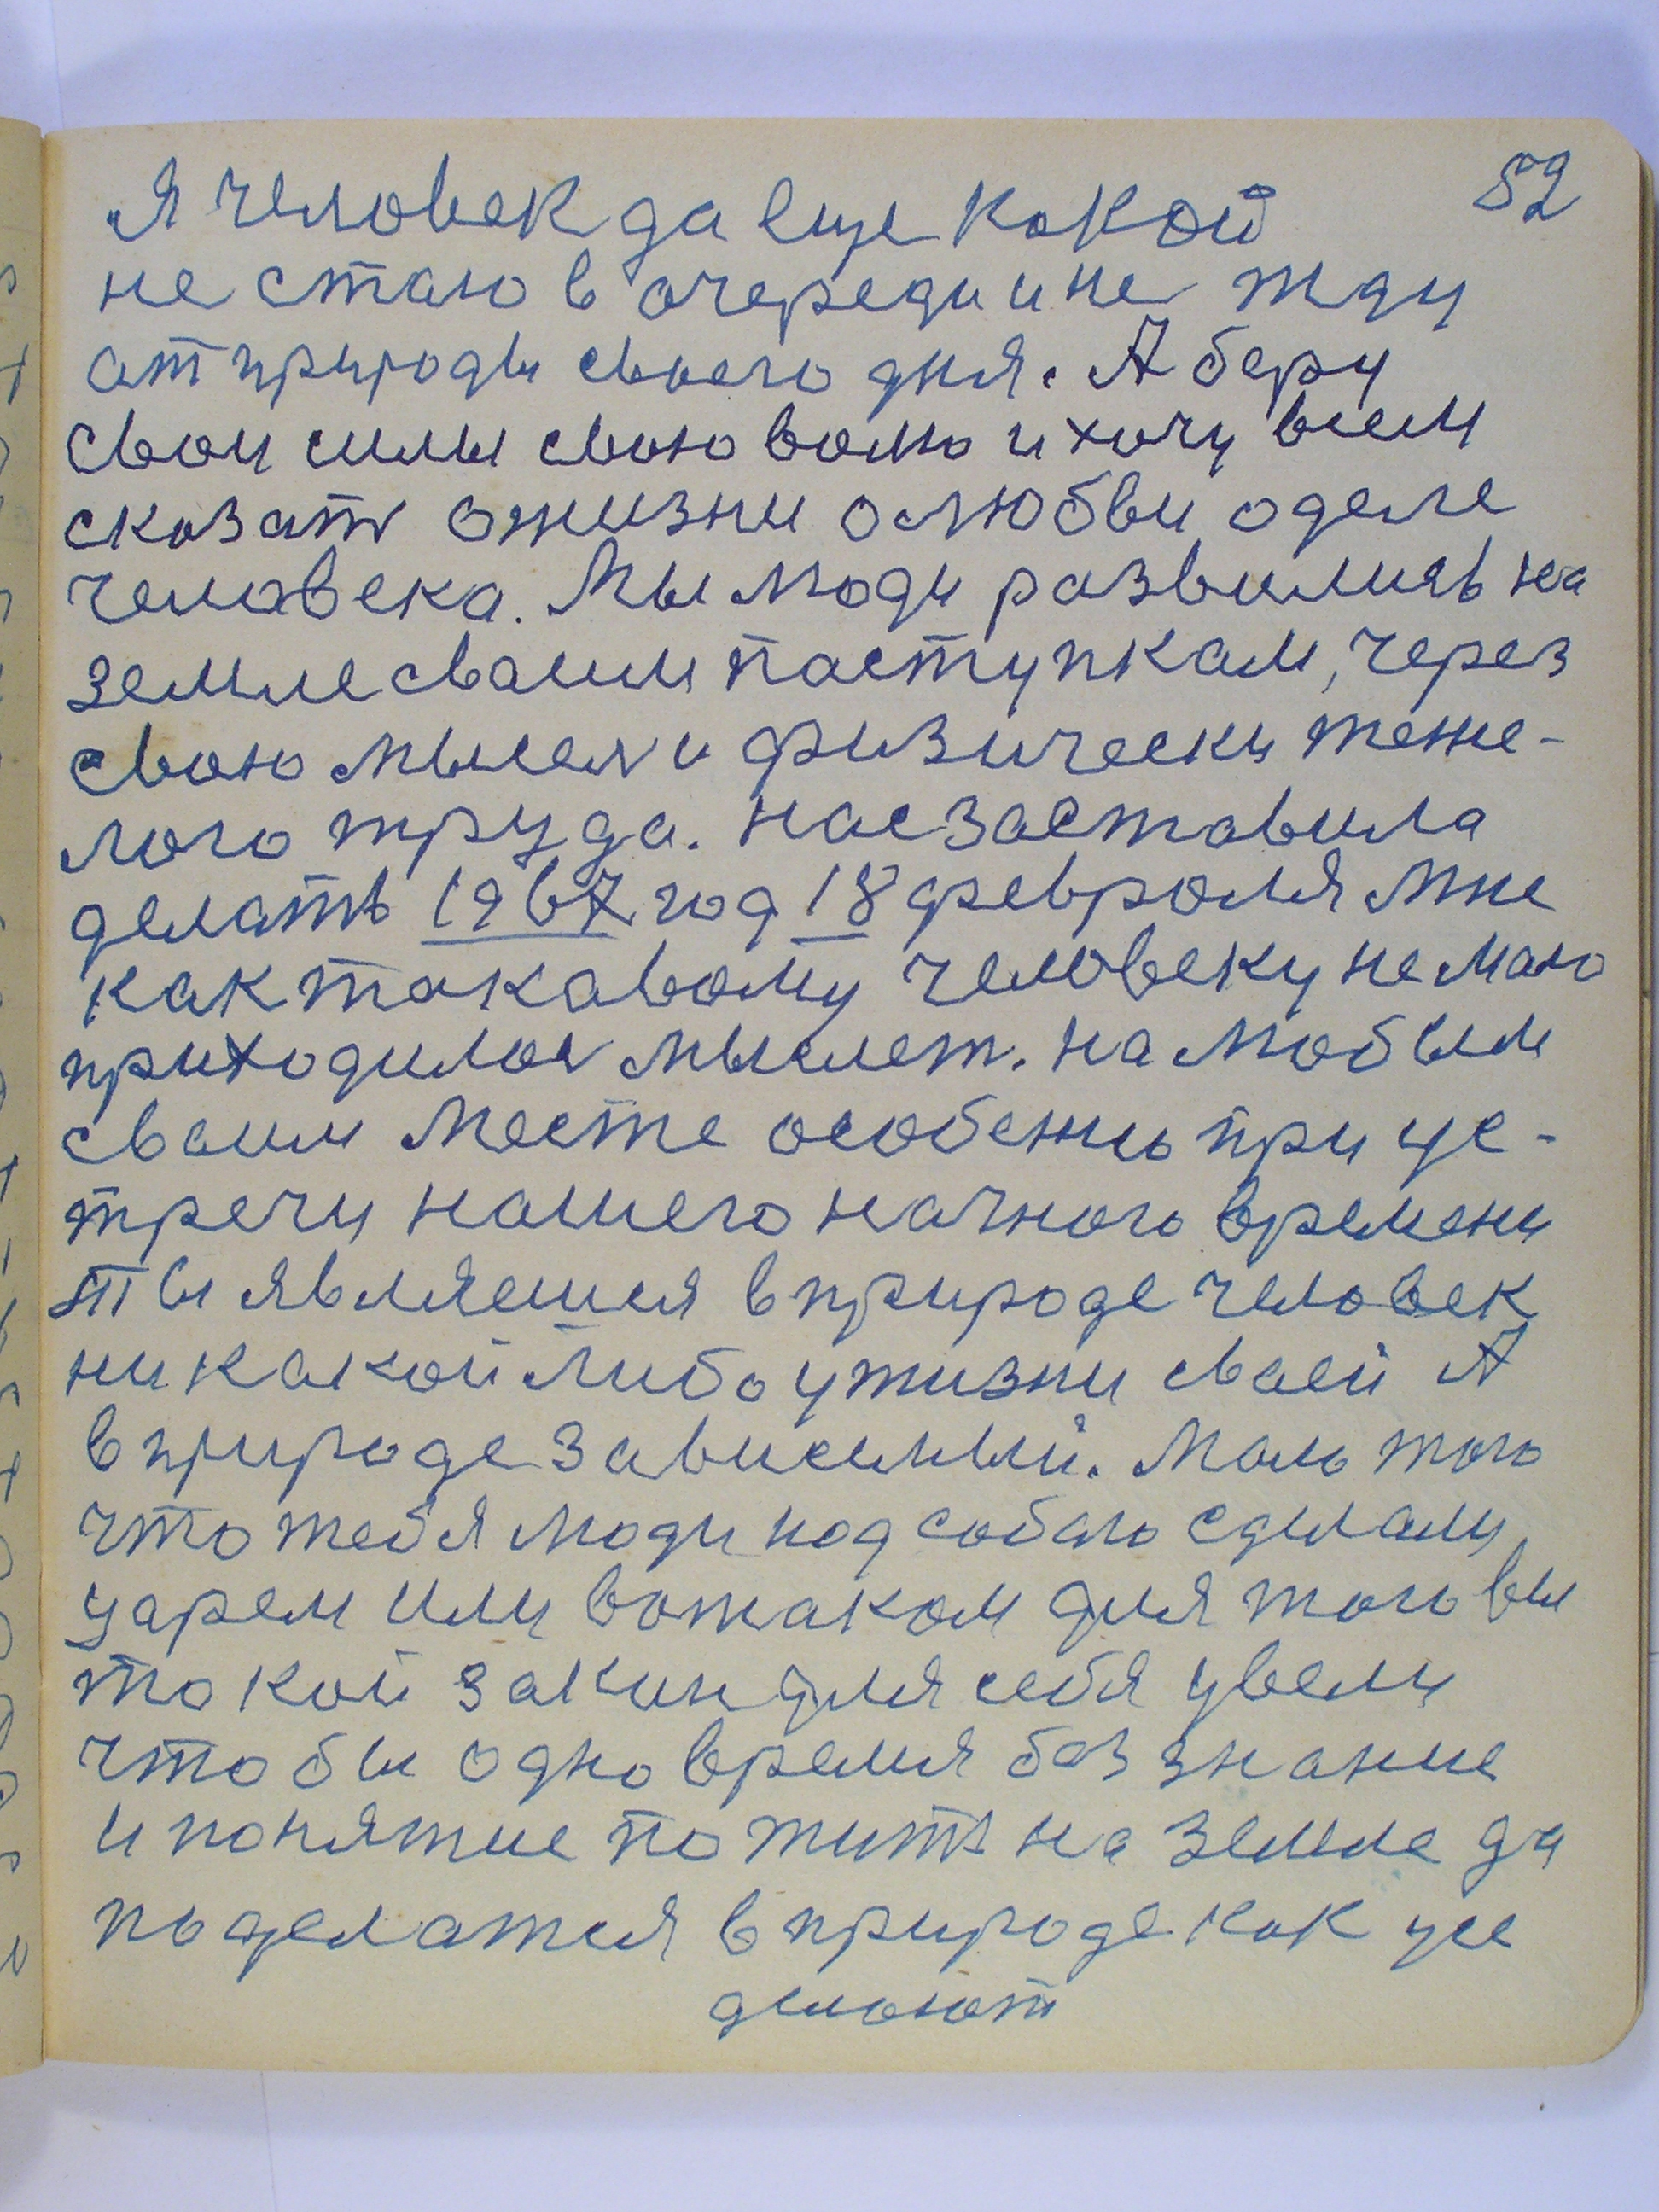 52
Я человек да еще какой
не стаю в очереди и не жду
от природы своего дня. А беру
свои силы свою волю и хочу всем
сказать о жизни о любви о деле
человека. Мы люди развились на
земле сваим паступкам, через
свою мысель и физически теже-
лого труда. Нас заставила
делать 1967 год 18 февроля мне
как такавому человеку не мало
приходилось мыслет. На любым
сваим месте особенно при ус-
тречи нашего начного времени
Ты являешся в природе человек
ни какой либо у жизни сваей А
в природе зависимый. Мало того
что тебя люди над собаю сделали
царем или вожаком для того вы
такой закон для себя увели
чтобы одно время без знание
и понятие пожить на земле да
поделатся в природе как усе
делают